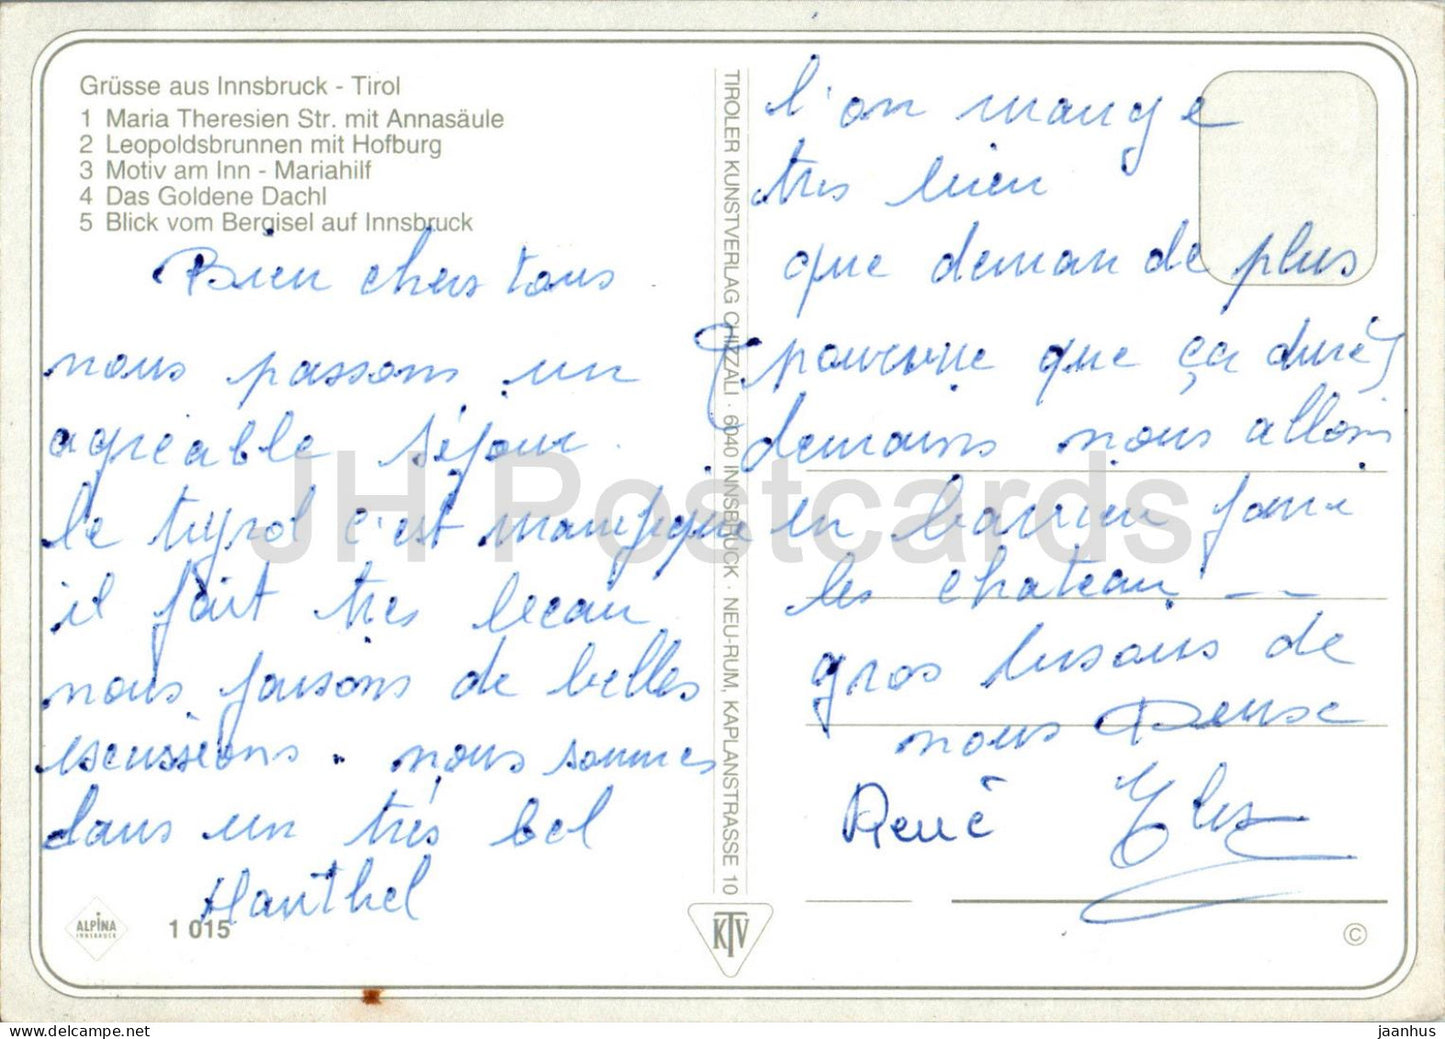 Grüsse aus Innsbruck - Tirol
1 Maria Theresien Str. mit Annasäule
2 Leopoldsbrunnen mit Hofburg
3 Motiv am Inn - Mariahilf
4 Das Goldene Dachl
5 Blick vom Bergisel auf Innsbruck
Bien chers tous
nous passons un
agreable séjour.
le tyrol c'est manifique
il fait tres beau
nous faisons de belles
escussions. nous sommes
dans un très bel
Hauthel
ALPINA
INNSBRUCK
1 015
TIROLER KUNSTVERLAG CHIZZALI · 6040 INNSBRUCK · NEU-RUM, KAPLANSTRASSE 10
KTV
l'on mange
tres bien
que demande plus
(pourvue que ça dure)
demains nous allons
en bavrien voir
les chateau --
gros bisous de
nous Denise
René
©
JH Postcards
jaanhus.com